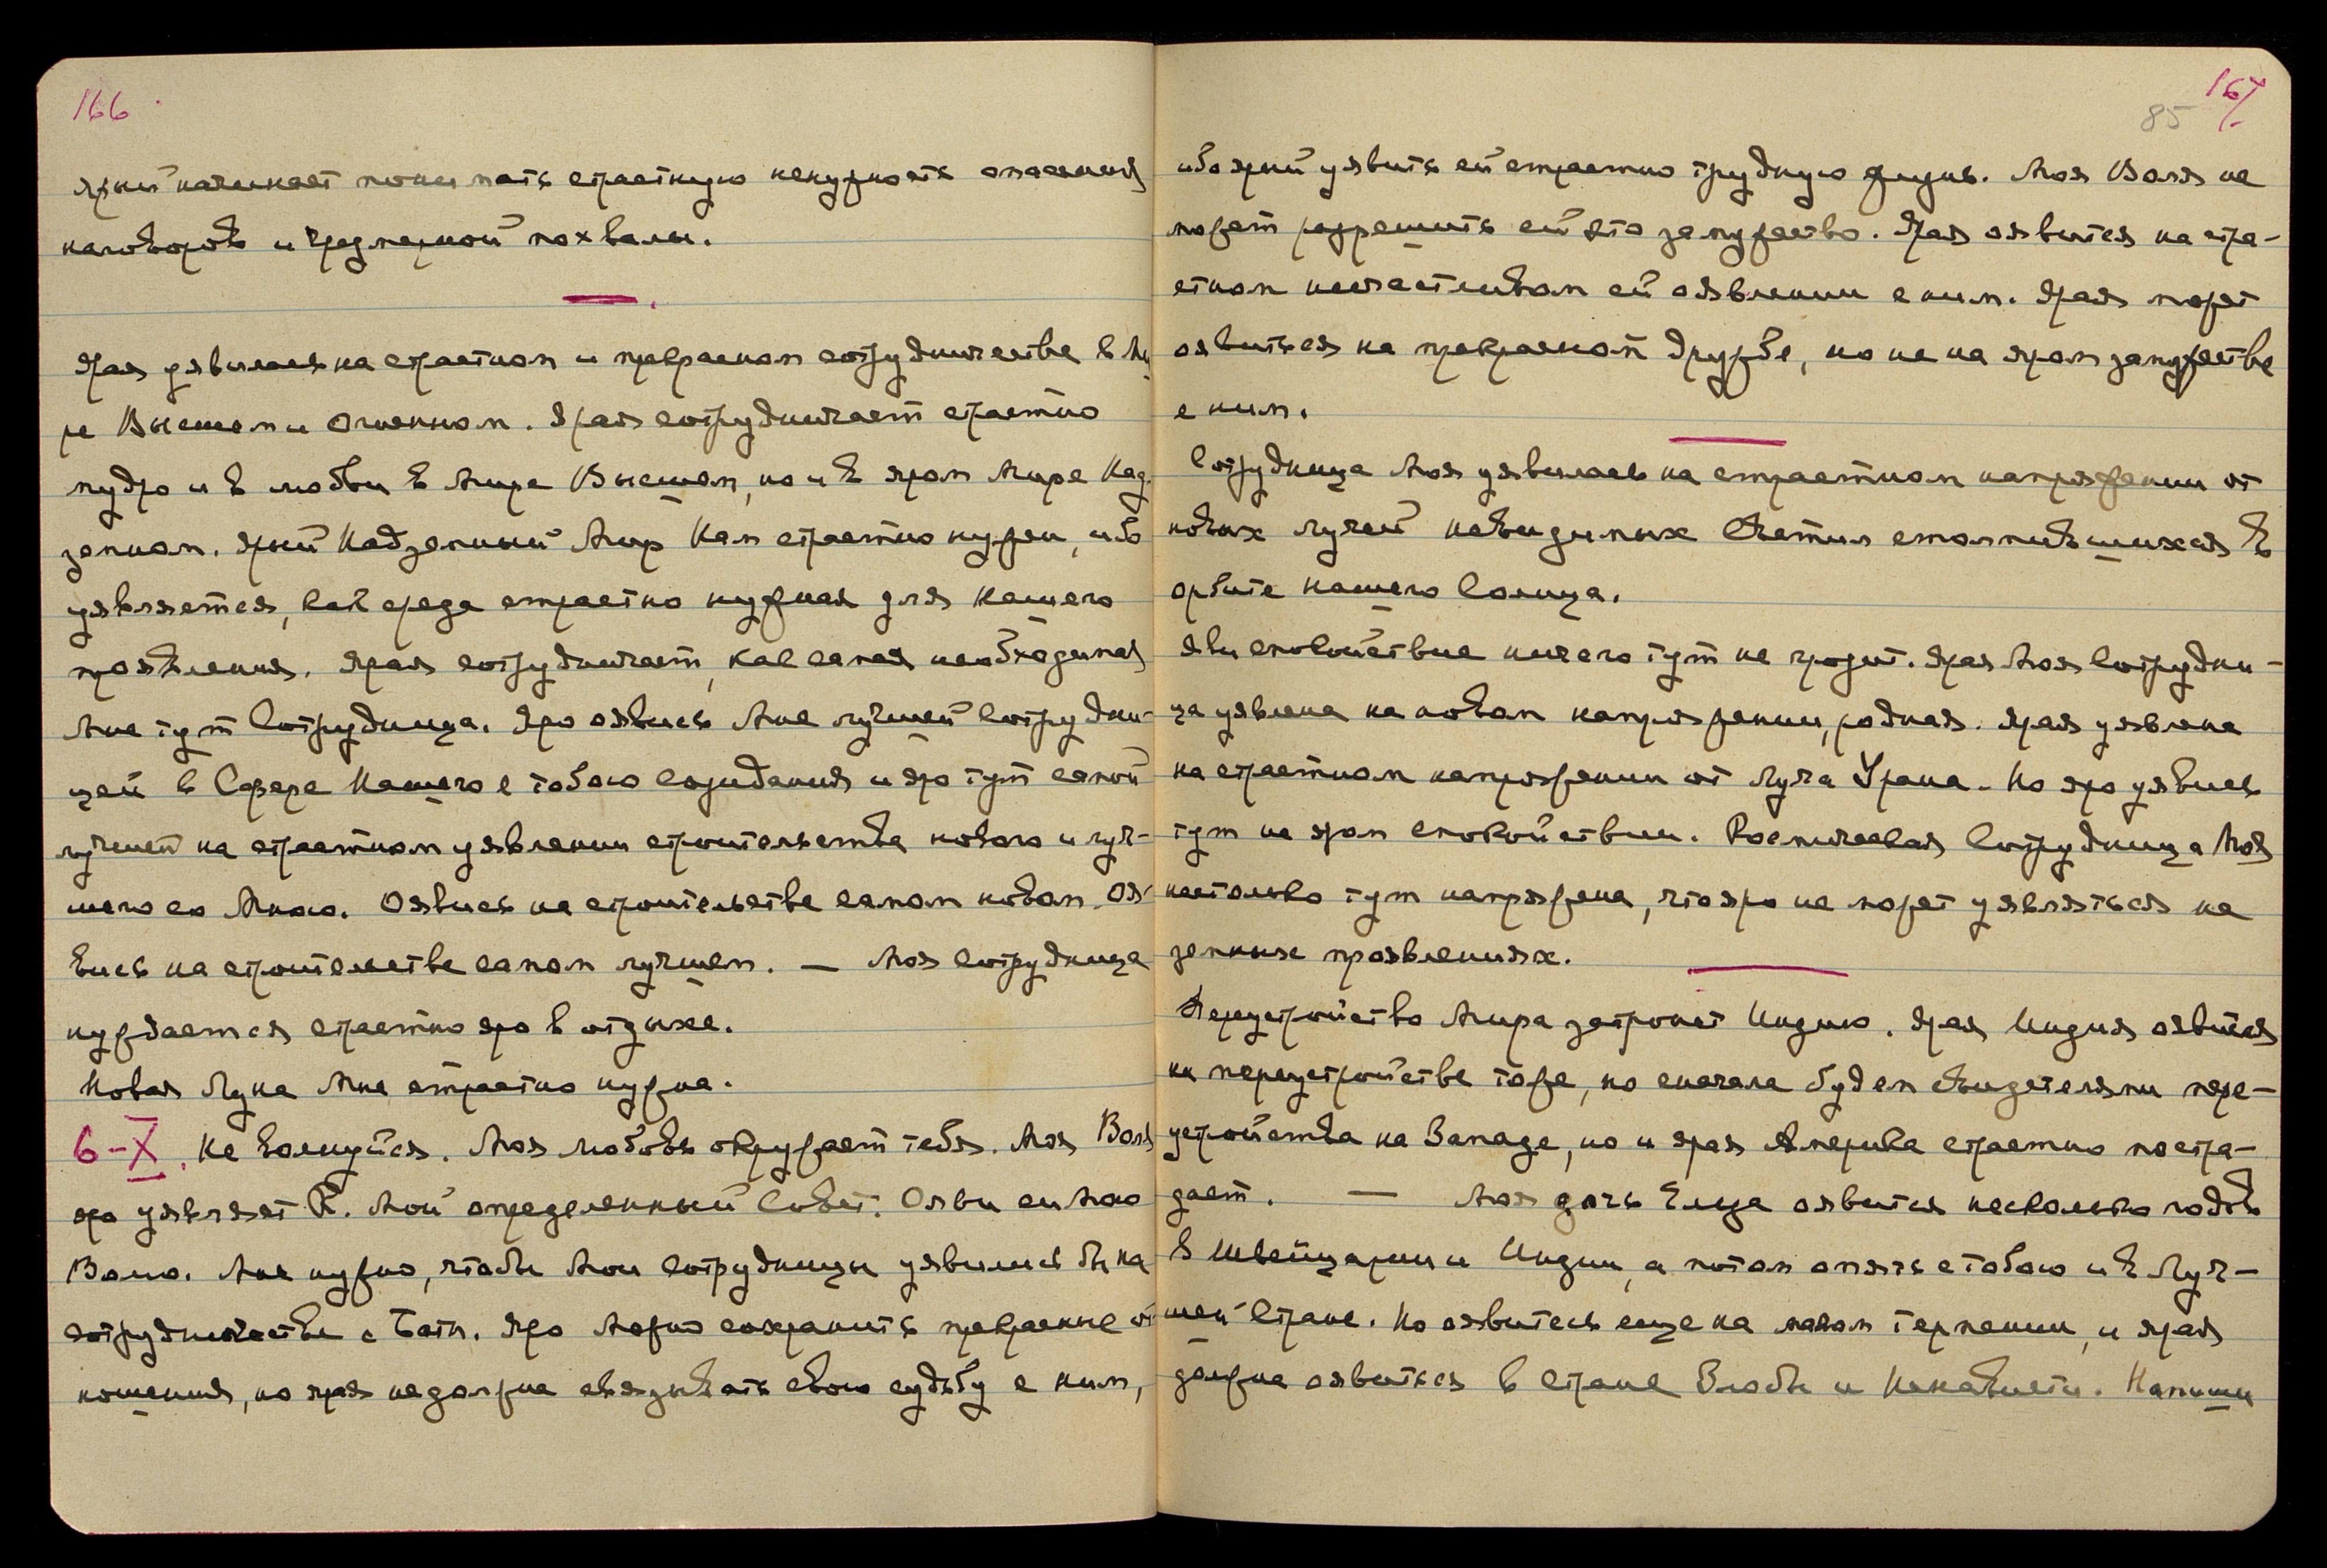 166
ярый начинает понимать страстную ненужность опасения
наговоров и чрезмерной похвалы.
Ярая уявилась на страстном и прекрасном сотрудничестве в Ми-
ре Высшем и Огненном. Ярая сотрудничает страстно
мудро и в любви в Мире Высшем, но и в яром Мире Над-
земном. Ярый Надземный Мир Нам страстно нужен, ибо
уявляется, как среда страстно нужная для Нашего
проявления. Ярая сотрудничает, как самая необходимая
Мне тут Сотрудница. Яро оявись Мне лучшей Сотрудни-
цей в Сфере Нашего с тобою созидания и яро тут самой
лучшей на страстном уявлении строительства нового и луч-
шего со Мною. Оявись на строительстве самом новом. Оя-
вись на строительстве самом лучшем. — Моя сотрудница
нуждается страстно яро в отдыхе.
Новая Луна Мне страстно нужна.
6-X. Не волнуйся. Моя любовь окружает тебя. Моя Воля
яро уявляет К. Мой определенный Совет. Ояви ей Мою
Волю. Мне нужно, чтобы Мои сотрудницы уявились бы на
сотрудничестве с Бати. Яро можно сохранить прекрасные от-
ношения, но ярая не должна связывать свою судьбу с ним,
167
85
ибо ярый уявить ей страстно трудную жизнь. Моя Воля не
может разрешить ей это замужество. Ярая оявится на стра-
стном несчастливом ей оявлении с ним. Ярая может
оявиться на прекрасной дружбе, но не на яром замужестве
с ним.
Сотрудница Моя уявилась на страстном напряжении от
новых лучей невидимых Светил столпившихся в
орбите нашего Солнца.
Яви спокойствие ничего тут не грозит. Ярая Моя Сотрудни-
ца уявлена на новом напряжении, родная. Ярая уявлена
на страстном напряжении от Луча Урана. Но яро уявись
тут на яром спокойствии. Космическая Сотрудница Моя
настолько тут напряжена, что яро не может уявляться на
земных проявлениях.
Переустройство Мира затронет Индию. Ярая Индия оявится
на переустройстве тоже, но сначала будем свидетелями пере-
устройства на Западе, но и ярая Америка страстно постра-
дает. — Моя дочь оявится несколько годов
в Швейцарии и Индии, а потом опять с тобою и в Луч-
шей Стране. Но оявитесь еще на малом терпении, и ярая
должна оявиться в стране Злобы и Ненависти. Напиши